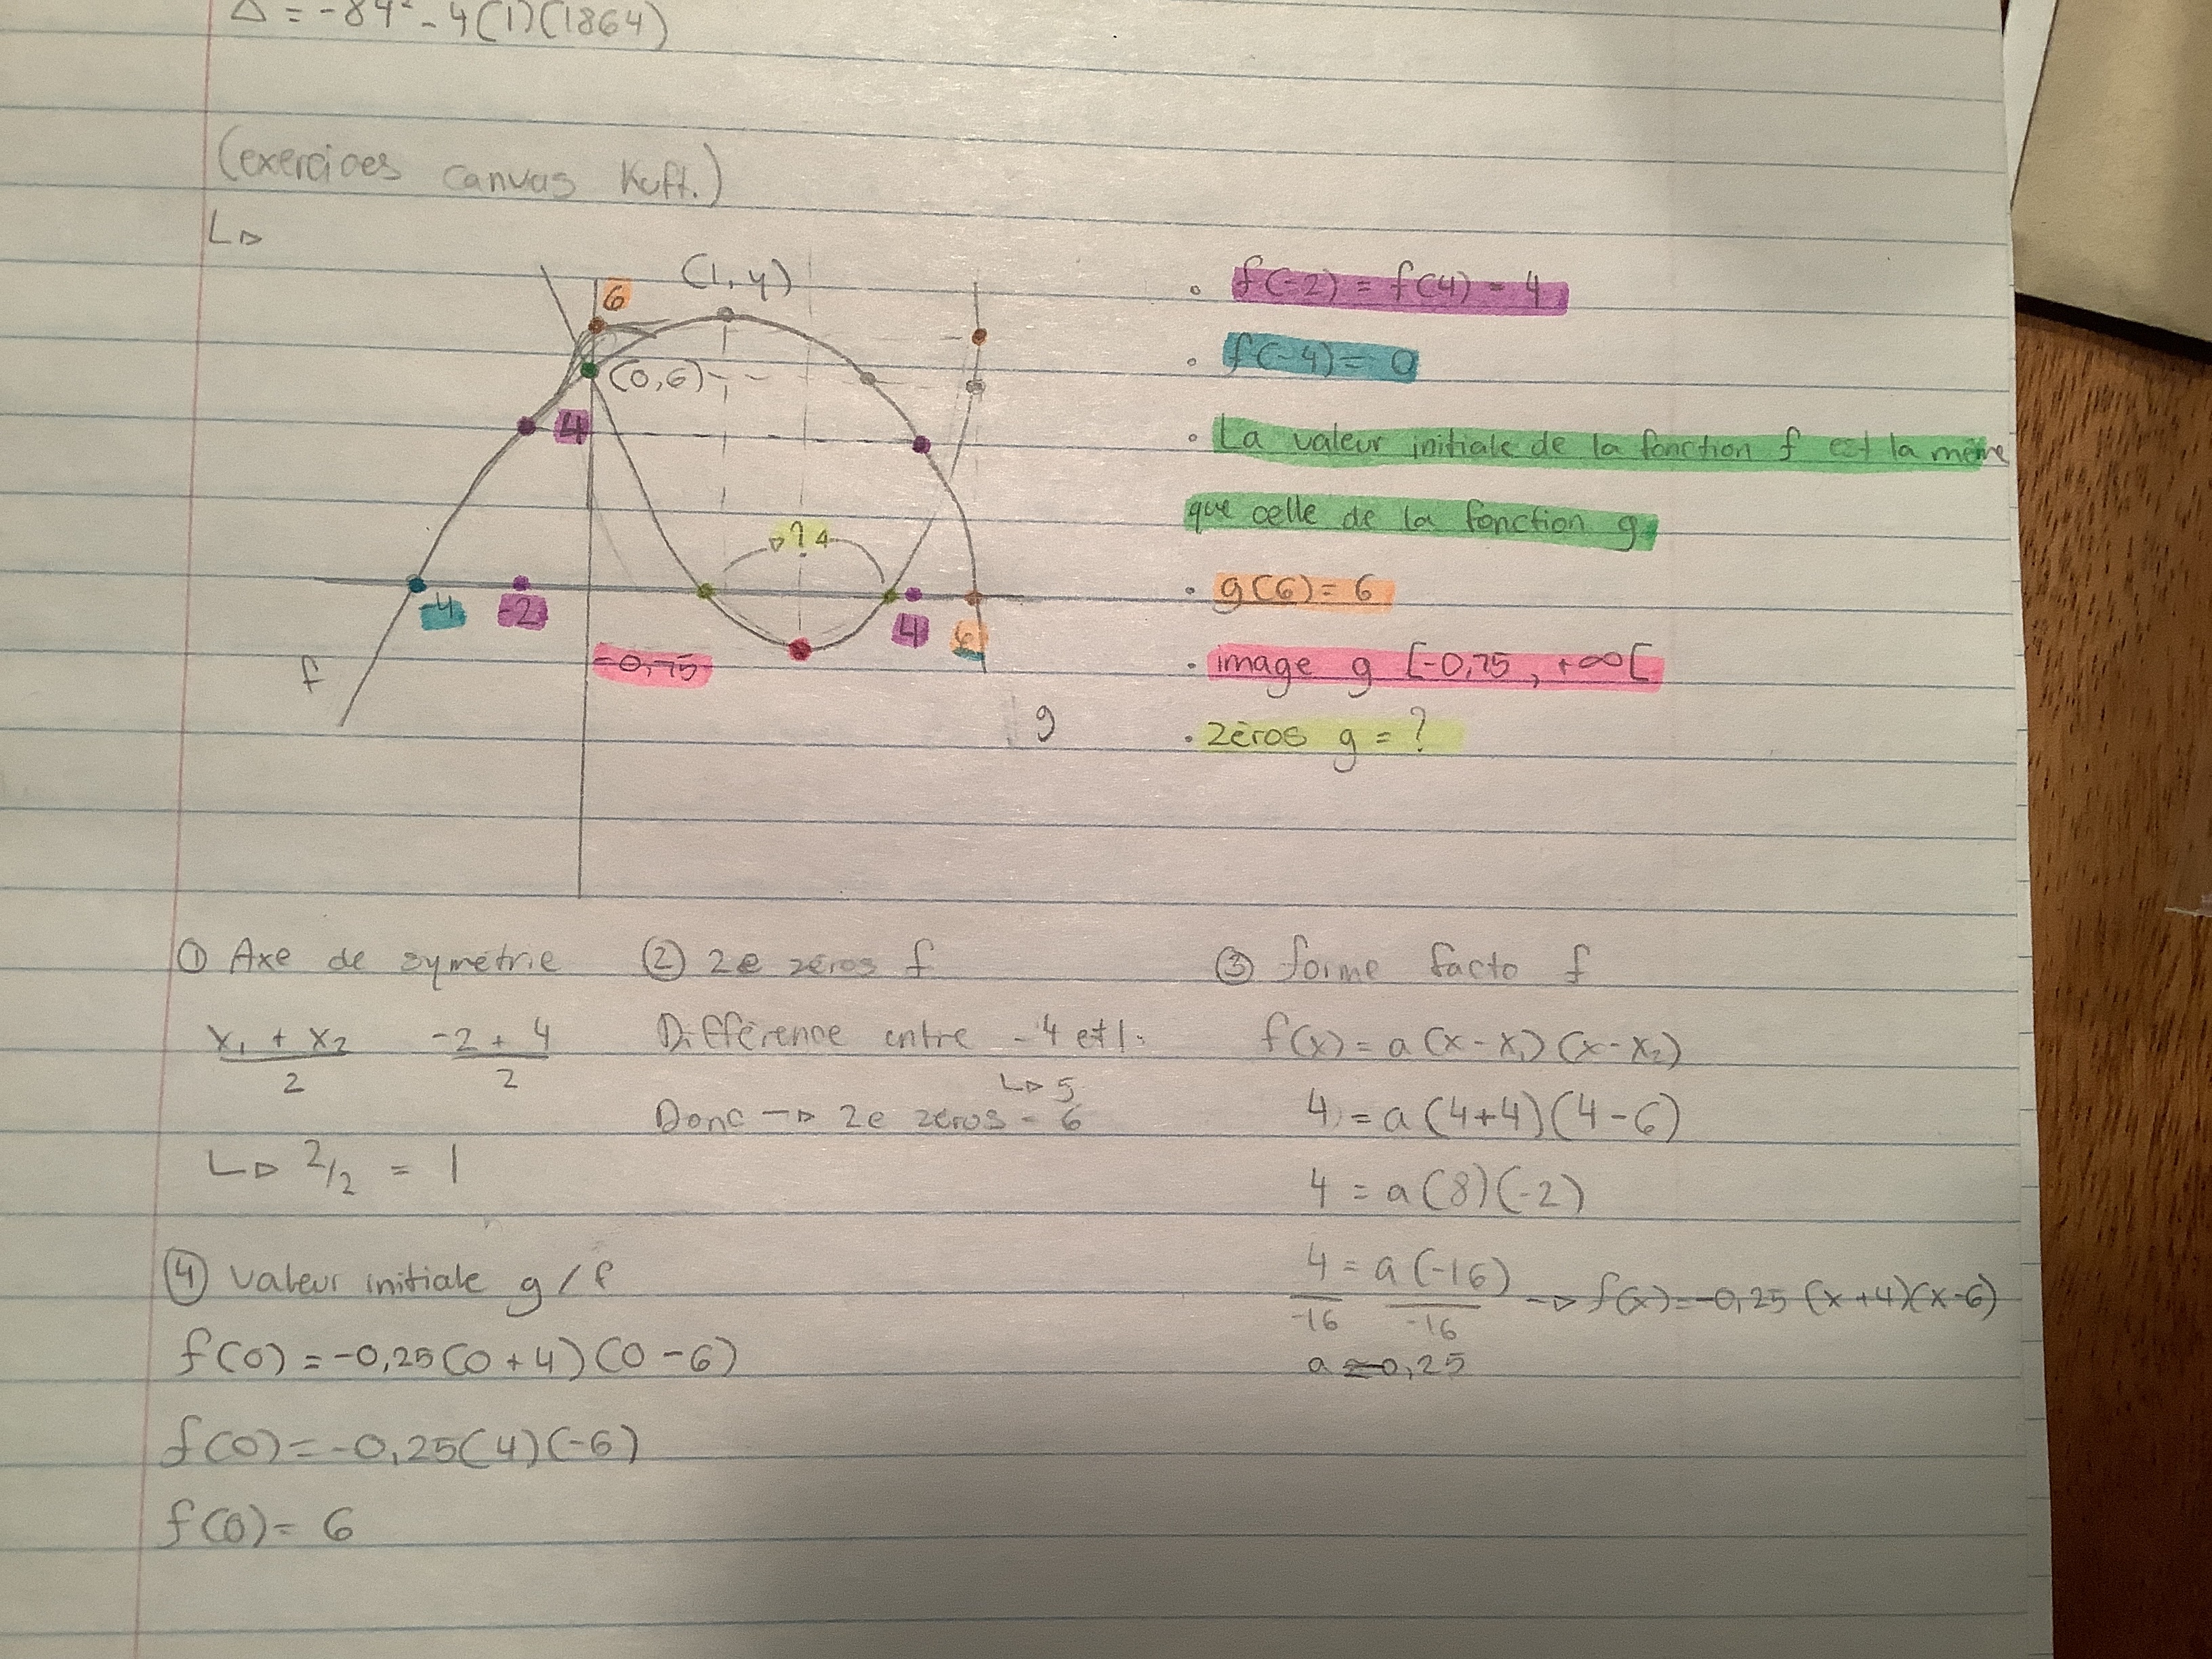 Δ = -84² - 4(1)(1864)
(exercices canvas Kuft.)
(1, y)
6
(0,6)
4
? 4
-4
-2
4
6
-0,75
f
g
• f(-2) = f(4) = 4
• f(-4) = 0
• La valeur initiale de la fonction f est la même
que celle de la fonction g
• g(6) = 6
• image g [-0,75, +∞[
• zéros g = ?
① Axe de symétrie
x₁ + x₂ / 2   -2 + 4 / 2
↳ 2/2 = 1
② 2e zéros f
Différence entre -4 et 1.
↳ 5
Donc → 2e zéros = 6
③ forme facto f
f(x) = a(x-x₁)(x-x₂)
4 = a(4+4)(4-6)
4 = a(8)(-2)
4 = a(-16)
-16   -16
→ f(x) = -0,25(x+4)(x-6)
a = -0,25
④ valeur initiale g/f
f(0) = -0,25(0+4)(0-6)
f(0) = -0,25(4)(-6)
f(0) = 6